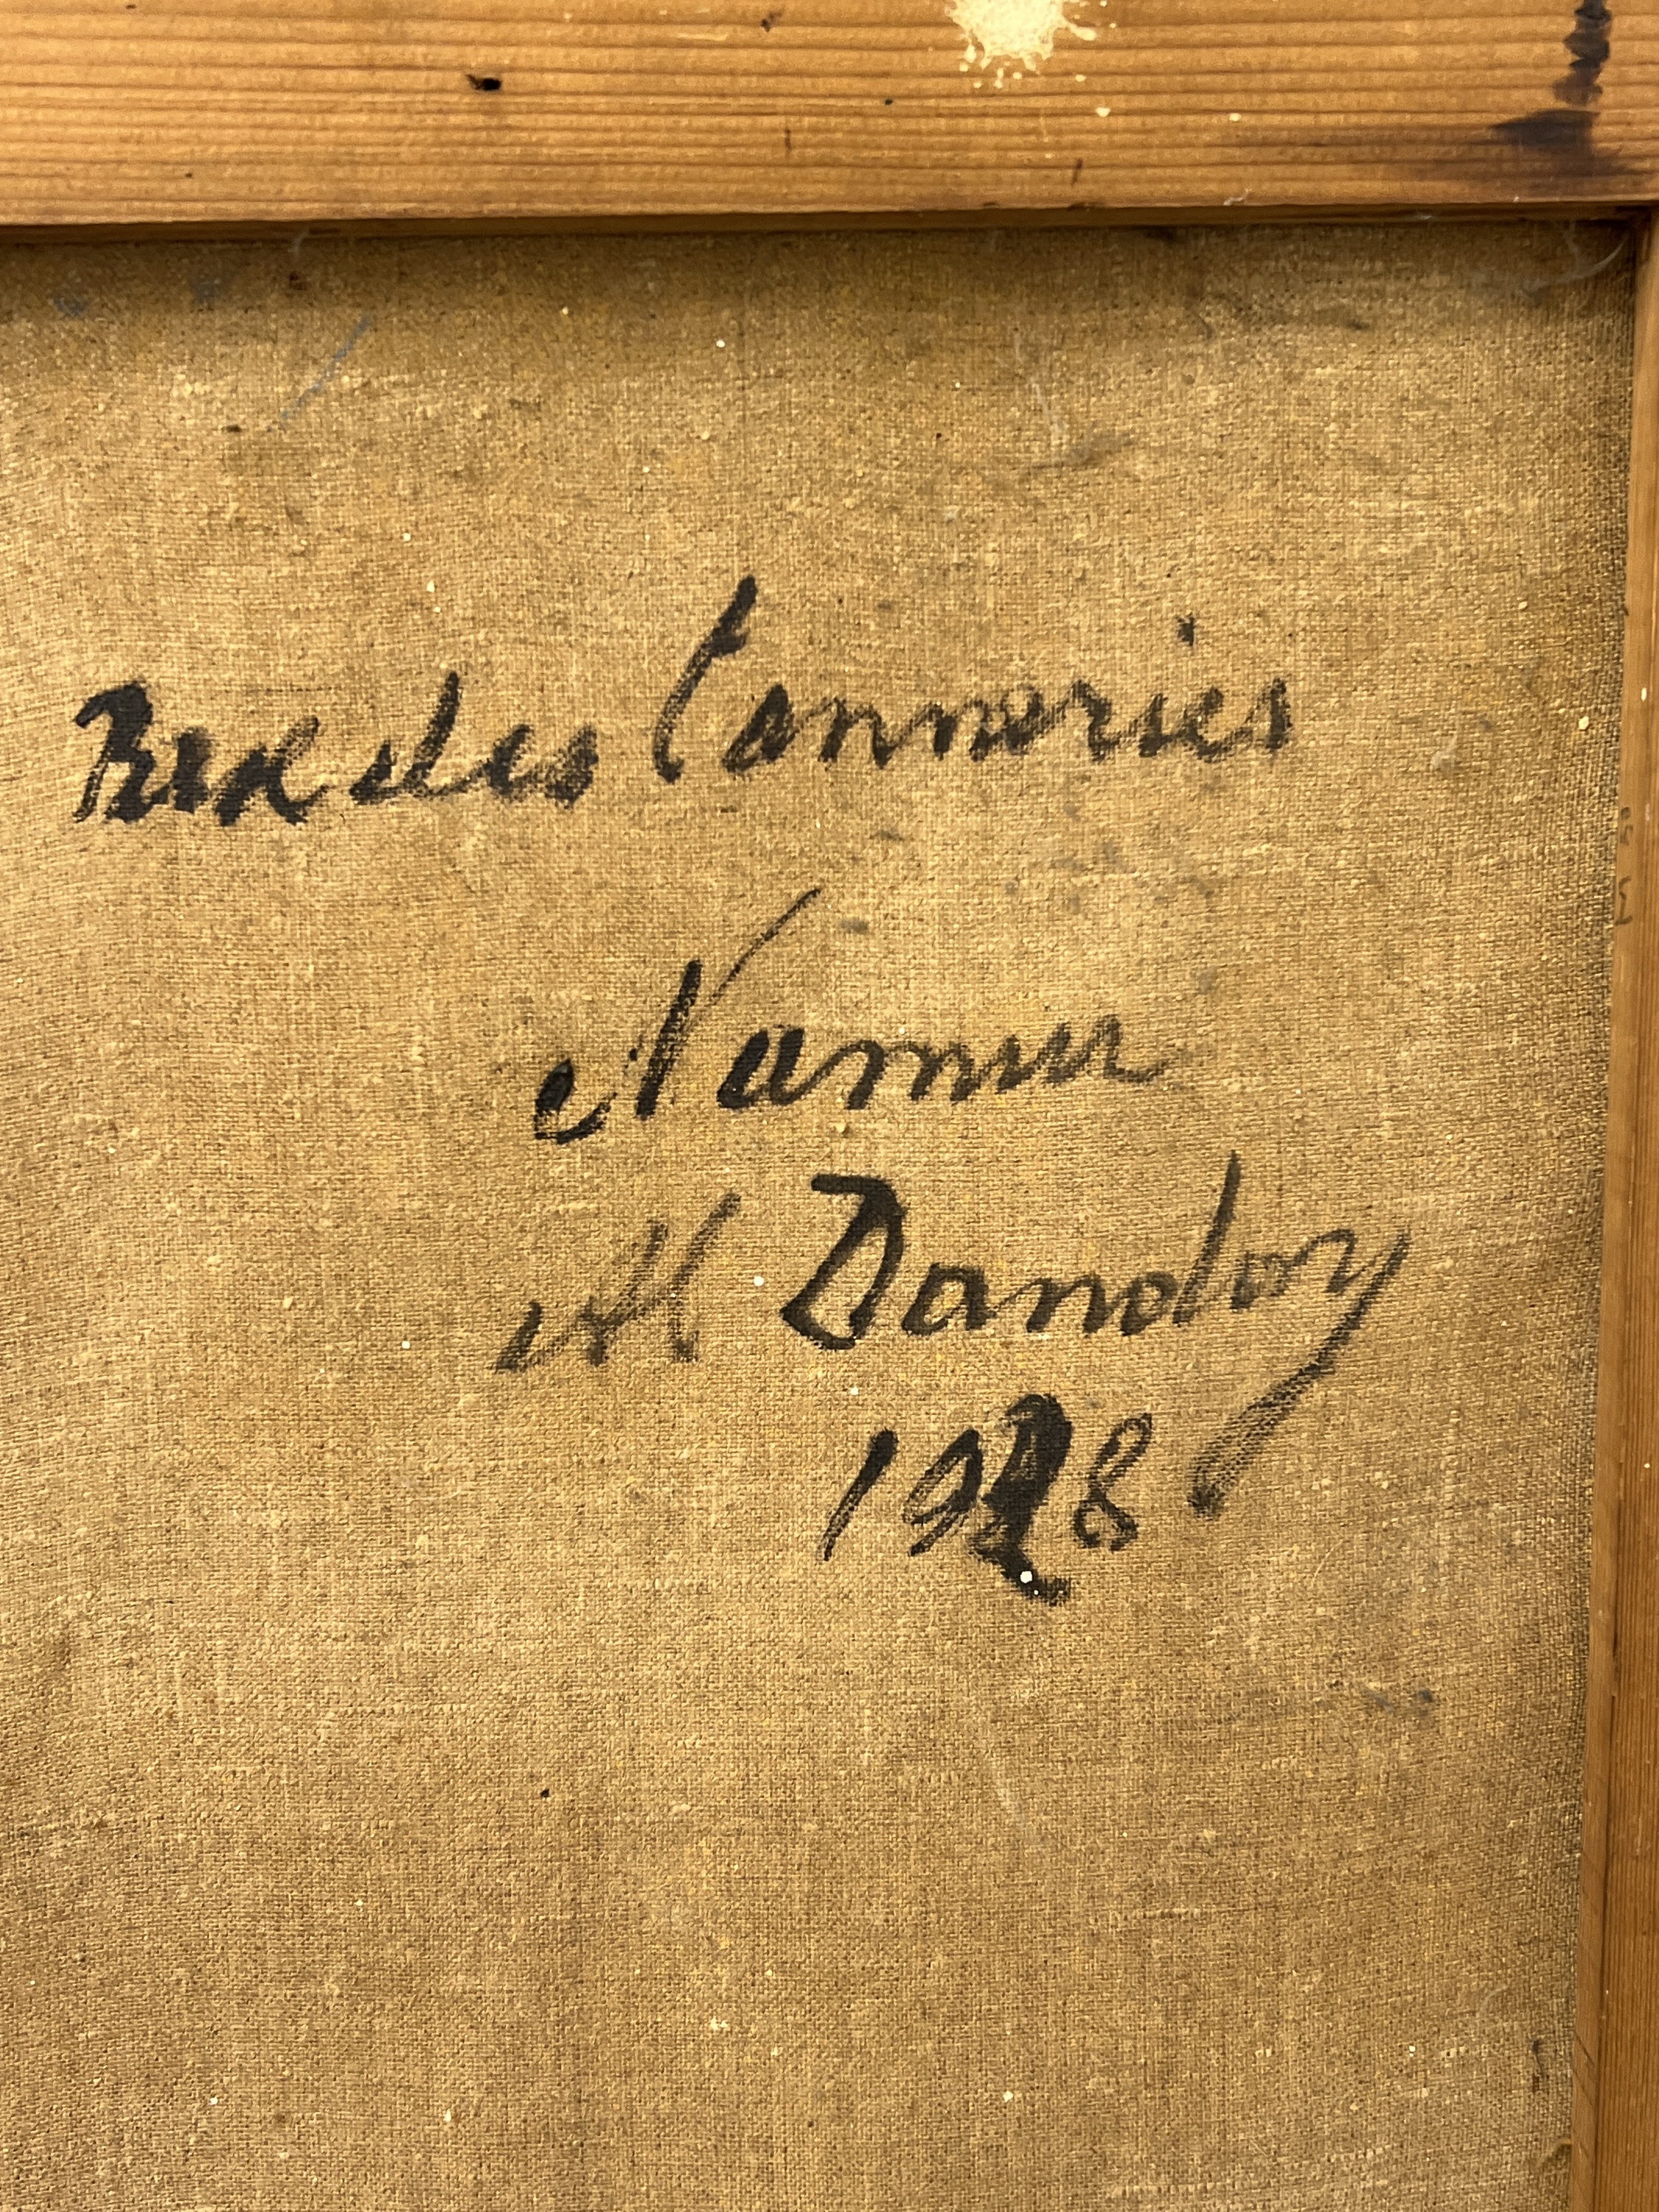 Rue des Tanneries
Namur
A Dandoy
1928